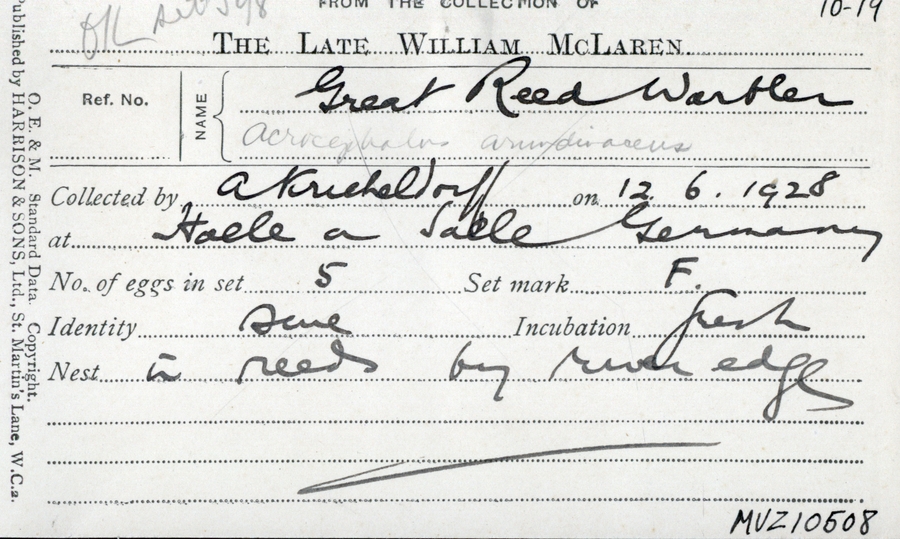 FROM THE COLLECTION OF
10-19
THE LATE WILLIAM McLAREN.
Ref. No.
NAME
Great Reed Warbler
Acrocephalus arundinaceus
Collected by A Kricheldorff on 12. 6. 1928
at Halle a Salle Germany
No. of eggs in set 5 Set mark F.
Identity sure Incubation fresh
Nest in reeds by river edge
MVZ10508
O. E. & M. Standard Data. Copyright.
Published by HARRISON & SONS, Ltd., St. Martin's Lane, W.C.2.